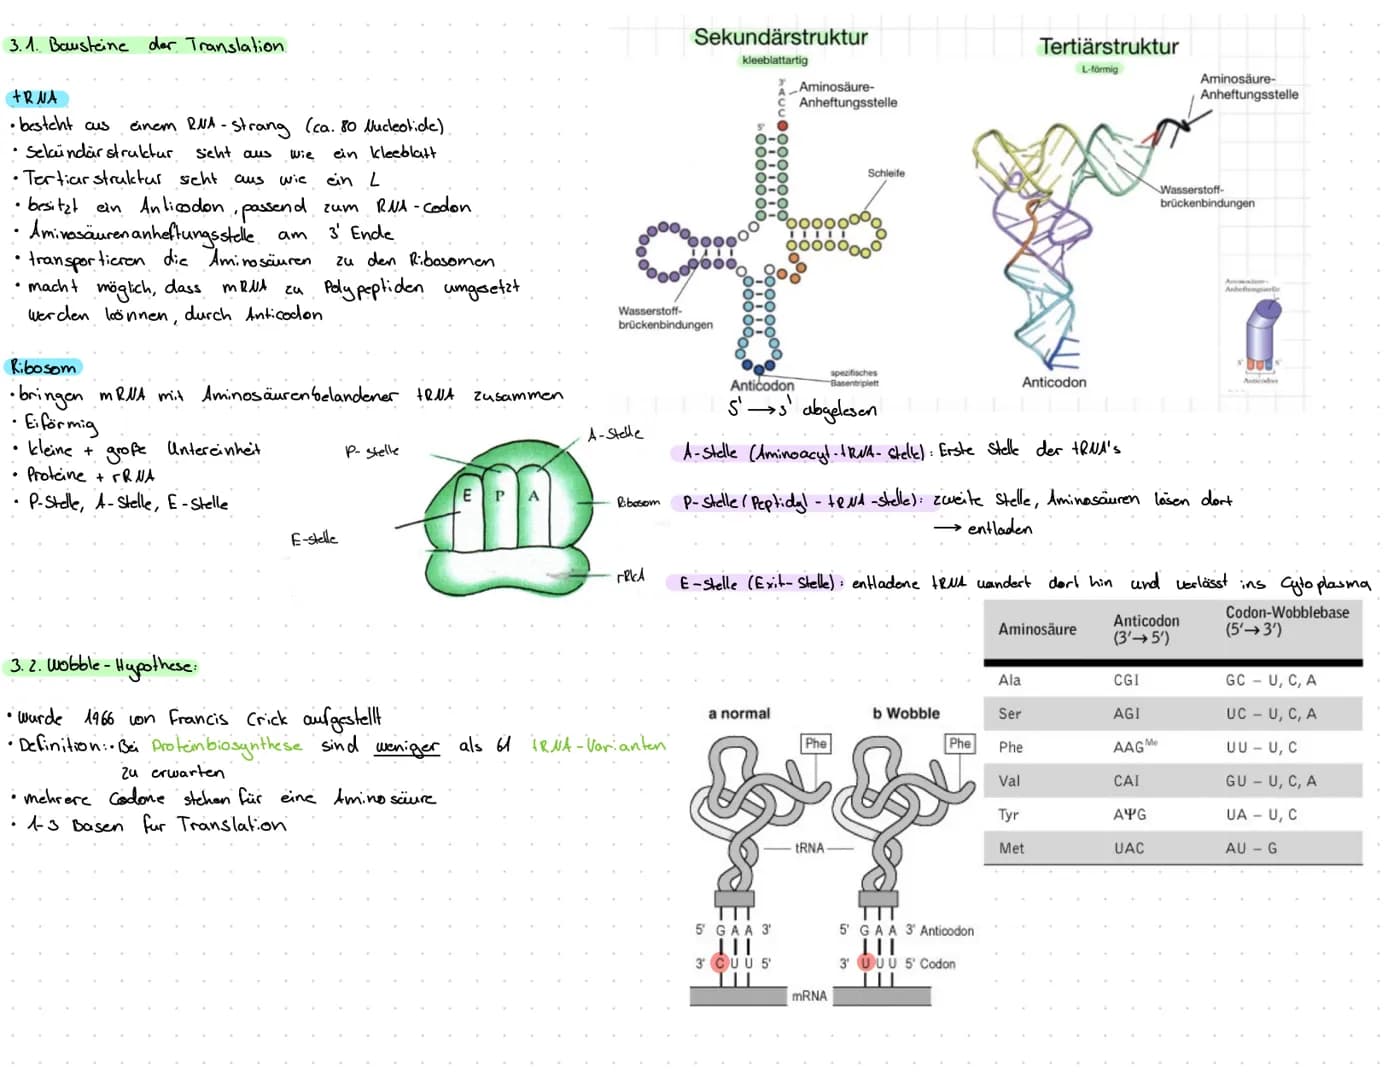 3.1. Bausteine der Translation
tRNA
• besteht aus einem RNA-Strang (ca. 80 Nucleotide)
• Sekundärstruktur sieht aus wie ein Kleeblatt
• Tertiärstruktur seht aus wie ein L
• besitzt ein Anticodon, passend zum RNA-Codon
• Aminosäurenanheftungsstelle am 3' Ende
• transportieren die Aminosäuren zu den Ribosomen
• macht möglich, dass mRNA zu Polypeptiden umgesetzt
werden können, durch Anticodon
Ribosom
• bringen mRNA mit Aminosäurenbelandener tRNA zusammen
• Eiförmig
• kleine + große Untereinheit
• Proteine + rRNA
• P-Stelle, A-Stelle, E-Stelle
Sekundärstruktur
kleeblattartig
3'
A
C
C
Aminosäure-
Anheftungsstelle
5'
Schleife
Wasserstoff-
brückenbindungen
Anticodon
spezifisches
Basentriplett
5' → 3' abgelesen
Tertiärstruktur
L-förmig
Aminosäure-
Anheftungsstelle
Wasserstoff-
brückenbindungen
Anticodon
Aminosäure-
Anheftungsstelle
Anticodon
P-Stelle
A-Stelle
E P A
Ribosom
E-Stelle
rRNA
A-Stelle (Aminoacyl-tRNA-Stelle): Erste Stelle der tRNA's
P-Stelle (Peptidyl-tRNA-Stelle): zweite Stelle, Aminosäuren lösen dort
→ entladen
E-Stelle (Exit-Stelle): entladene tRNA wandert dort hin und verlässt ins Cytoplasma
3.2. Wobble-Hypothese:
• wurde 1966 von Francis Crick aufgestellt
• Definition: • Bei Proteinbiosynthese sind weniger als 61 tRNA-Varianten
zu erwarten
• mehrere Codone stehen für eine Aminosäure
• 1-3 Basen für Translation
a normal
b Wobble
Phe
Phe
tRNA
5' G A A 3'
5' G A A 3' Anticodon
3' C U U 5'
3' U U U 5' Codon
mRNA
Aminosäure Anticodon (3'→5') Codon-Wobblebase (5'→3')
Ala CGI GC – U, C, A
Ser AGI UC – U, C, A
Phe AAGMe UU – U, C
Val CAI GU – U, C, A
Tyr AΨG UA – U, C
Met UAC AU – G